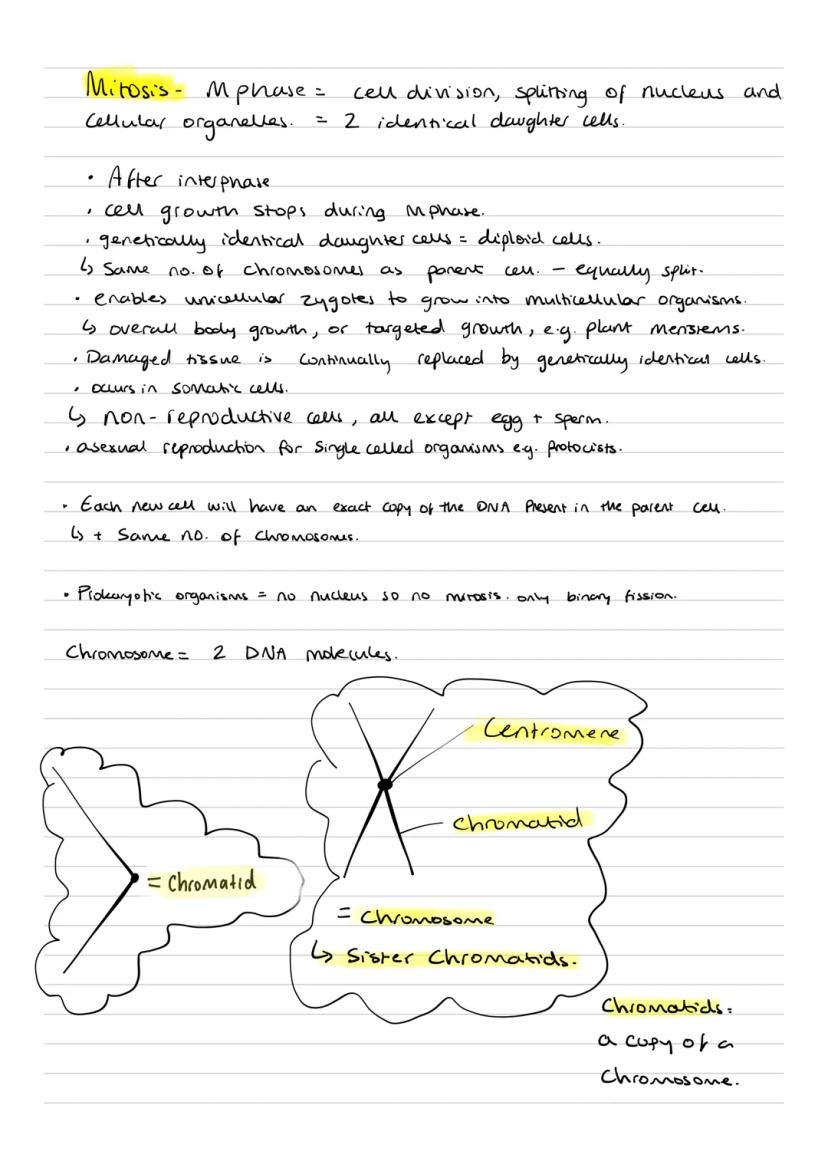 Mitosis - M phase = cell division, splitting of nucleus and
cellular organelles. = 2 identical daughter cells.
• After interphase
• cell growth stops during M phase.
• genetically identical daughter cells = diploid cells.
↳ Same no. of chromosomes as parent cell. - equally split.
• enables unicellular zygotes to grow into multicellular organisms.
↳ overall body growth, or targeted growth, e.g. plant meristems.
• Damaged tissue is continually replaced by genetically identical cells.
• occurs in somatic cells.
↳ non-reproductive cells, all except egg + sperm.
• asexual reproduction for single celled organisms e.g. protocists.
• Each new cell will have an exact copy of the DNA present in the parent cell.
↳ + Same no. of chromosomes.
• Prokaryotic organisms = no nucleus so no mitosis. only binary fission.
Chromosome = 2 DNA molecules.
Centromere
chromatid
= Chromatid
= Chromosome
↳ Sister Chromatids.
Chromatids =
a copy of a
chromosome.